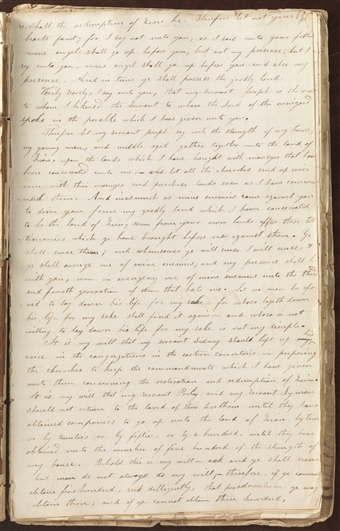 shall the redemption of Zion be. Therefore let not your
hearts faint, for I say not unto you, as I said unto your fathers
mine angel shall go up before you, but not my presence; but I
say unto you, mine angel shall go up before you, and also my
presence. And in time ye shall possess the goodly land.
Verily Verily, I say unto you, that my servant is the man
to whom I likened the servant to whom the Lord of the vineyard
spoke in the parable which I have given unto you.
Therefore let my servant say unto the strength of my house,
my young men, and middle aged gather together unto the land of
Zion, upon the lands which I have bought with moneys that have
been consecrated unto me. and let all the churches send up wise
men, with their moneys and purchase lands even as I have comman
ded them. And inasmuch as mine enemies come against you
to drive you from my goodly land which I have consecrated
to be the land of Zion; even from your own lands after these tes
timonies which ye have brought before me against them. Ye
shall curse them; and whomsoever ye will curse I will curse &
ye shall avenge me of mine enemies; and my presence shall be
with you, even in avenging me of mine enemies unto the third
and fourth generation of them that hate me. Let no man be afra
id to lay down his life for my sake for whoso layeth down
his life for my sake shall find it again and whoso is not
willing to lay down his life for my sake is not my disciple.
It is my will that my servant Sidney should lift up his
voice in the congregations in the eastern countries in preparing
the churches to keep the commandments which I have given
unto them concerning the restoration and redemption of Zion.
It is my will that my servant Parley and my servant Lyman
should not return to the land of their brethren until they have
obtained companies to go up unto the land of Zion, by tens
or by twenties or by fifties, or by a hundred, until they have
obtained unto the number of five hundred of the strength of
my house. Behold this is my will ask and ye shall receive
but men do not always do my will therefore, if ye cannot
obtain five hundred, seek diligently, that peradventure ye may
obtain three, and if ye cannot obtain three hundred,